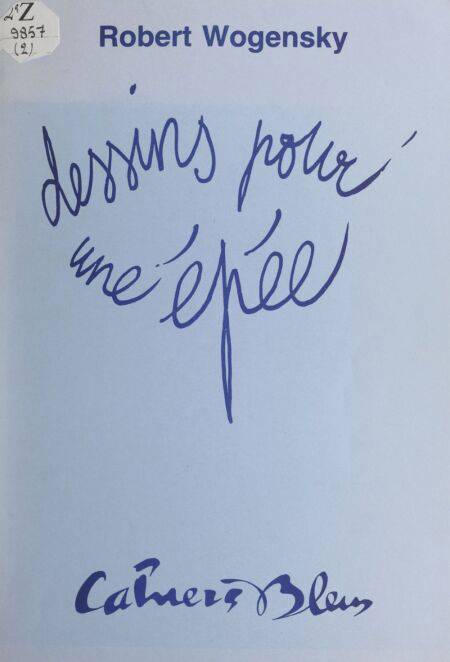 4° Z
9857
(2)
Robert Wogensky
dessins pour
une épée
Cahiers Bleus